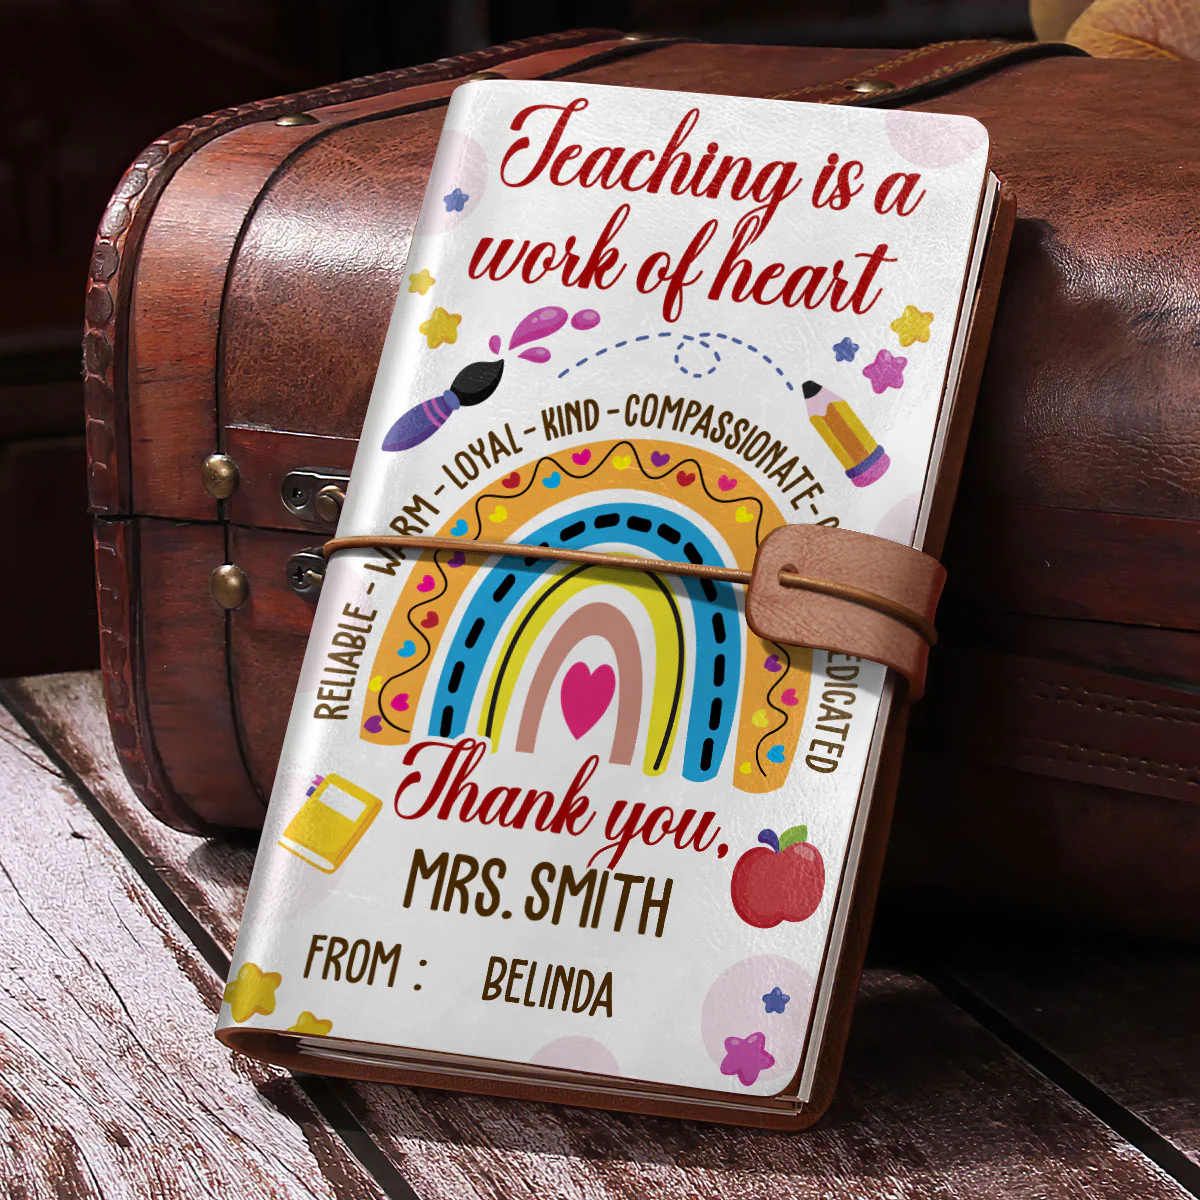 Teaching is a
work of heart
RELIABLE - WARM - LOYAL - KIND - COMPASSIONATE -
Thank you,
MRS. SMITH
FROM : BELINDA